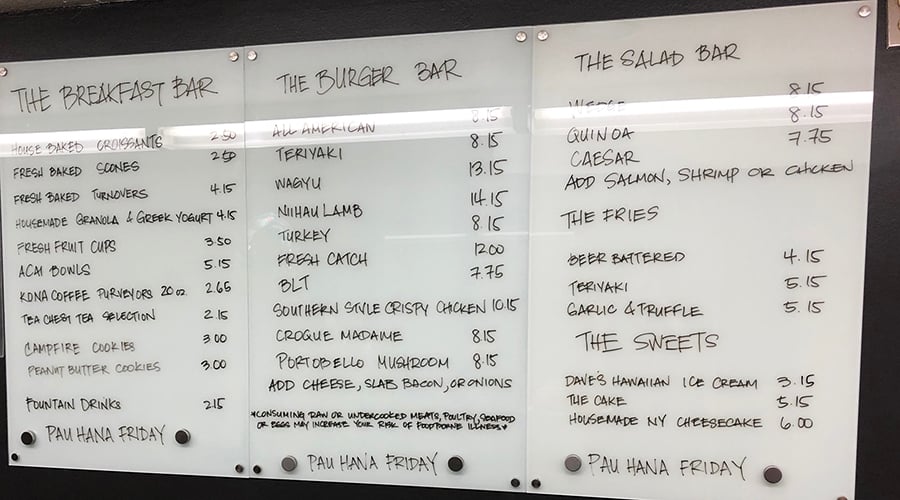 THE BREAKFAST BAR
HOUSE BAKED CROISSANTS 2.50
FRESH BAKED SCONES 2.50
FRESH BAKED TURNOVERS 4.15
HOUSEMADE GRANOLA & GREEK YOGURT 4.15
FRESH FRUIT CUPS 3.50
ACAI BOWLS 5.15
KONA COFFEE PURVEYORS 20 oz. 2.65
TEA CHEST TEA SELECTION 2.15
CAMPFIRE COOKIES 3.00
PEANUT BUTTER COOKIES 3.00
FOUNTAIN DRINKS 2.15
PAU HANA FRIDAY
THE BURGER BAR
ALL AMERICAN 8.15
TERIYAKI 8.15
WAGYU 13.15
NIIHAU LAMB 14.15
TURKEY 8.15
FRESH CATCH 12.00
BLT 7.75
SOUTHERN STYLE CRISPY CHICKEN 10.15
CROQUE MADAME 8.15
PORTOBELLO MUSHROOM 8.15
ADD CHEESE, SLAB BACON, OR ONIONS
*CONSUMING RAW OR UNDERCOOKED MEATS, POULTRY, SEAFOOD
OR EGGS MAY INCREASE YOUR RISK OF FOODBORNE ILLNESS*
PAU HANA FRIDAY
THE SALAD BAR
WEDGE 8.15
QUINOA 8.15
CAESAR 7.75
ADD SALMON, SHRIMP OR CHICKEN
THE FRIES
BEER BATTERED 4.15
TERIYAKI 5.15
GARLIC & TRUFFLE 5.15
THE SWEETS
DAVE'S HAWAIIAN ICE CREAM 3.15
THE CAKE 5.15
HOUSEMADE NY CHEESECAKE 6.00
PAU HANA FRIDAY